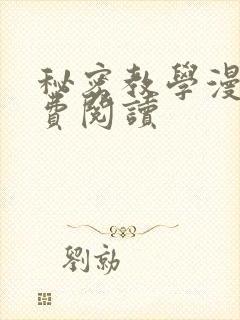 秘密教學漫
費閱讀
劉勍